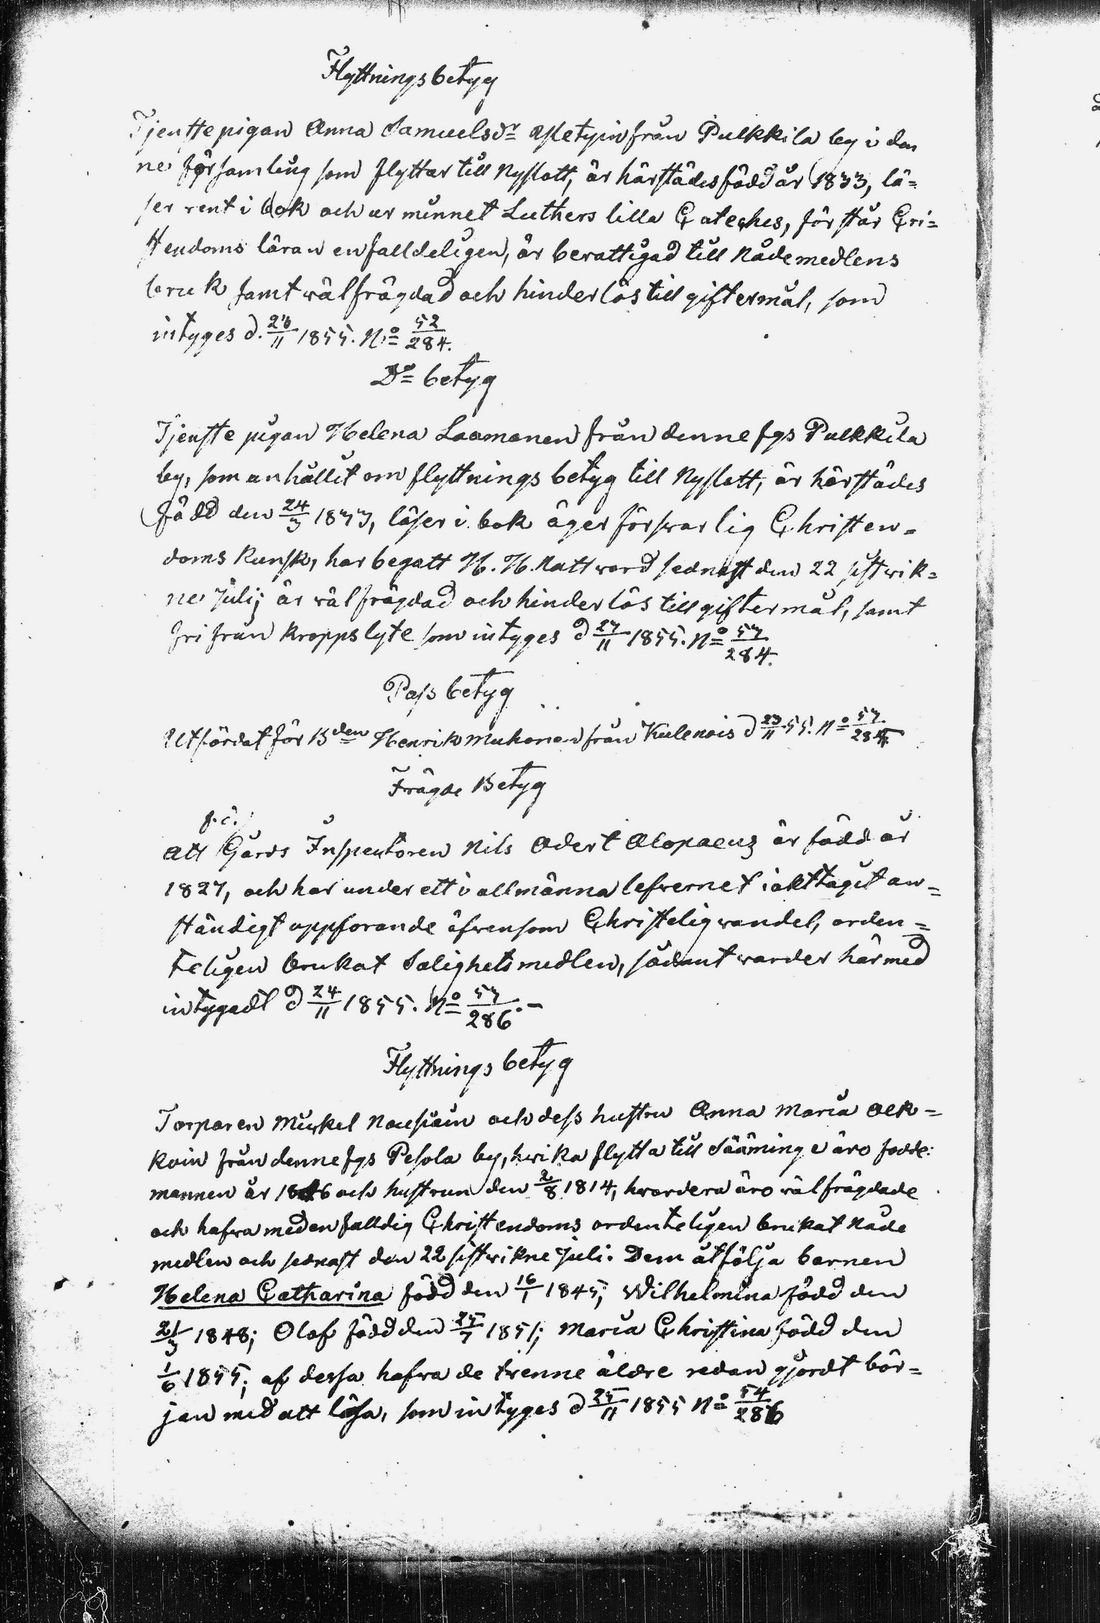 Flyttningsbetyg
Tjenstepigan Anna Samuelsdr från Pulkkila by i den
ne församling som flyttar till Nyslott, är härstädes född år 1833, lä=
ser rent i bok och ur minnet Luthers lilla Cateches, förstår Cri=
stendoms läran enfalldeligen, är berattigad till Nådemedlens
bruk samt wälfrägdad och hinderlös till giftermål, som
intyges d. 1855. No 52/284.
Do betyg
Tjenste pigan Helena Laamanen från denne fgs Pulkkila
by, som anhållit om flyttnings betyg till Nyslott, är härstädes
född den 24/3 1833, läser i bok äger förswarlig Christen=
doms kunsk, har begatt H. H. Nattward sednast den 22 sistwik=
ne Julij är wälfrägdad och hinderlös till giftermål, samt
fri från kroppslyte som intyges d 1855. No 53/284.
Pass betyg
Utfärdat för Bden Henrik Muhonen från d 23/11 55. No 53/284
Frägde Betyg
f. i.
Att Gårds Inspectoren Nils Adert Alopaeus är född år
1827, och har under ett i allmänna lefvernet iakttagit an=
ständigt uppforande äfvensom Christelig wandel, orden=
teligen brukat Salighetsmedlen, sådant warder härmed
intygadt d 24/11 1855. No 53/286. –
Flyttnings betyg
Torparen Mickel Nousiain och dess hustru Anna Maria
från denne fgs Pesola by, hwika flytta till Sääminge äro fodde:
mannen år och hustrun den 2/8 1814, hwardera äro wälfrägdade
och hafva med enfalldig Christendoms ordenteligen brukat Nåde
medlen och sednast den 22 sistwikne Juli. Dem åtfölja barnen
Helena Catharina född den 16/1 1845; Wilhelmina född den
21/3 1848; Olof född den 25/7 1851; Maria Christina född den
1/6 1855; af dessa hafva de trenne äldre redan gjordt bör=
jan med att läsa, som intyges d 25/11 1855 No 54/286